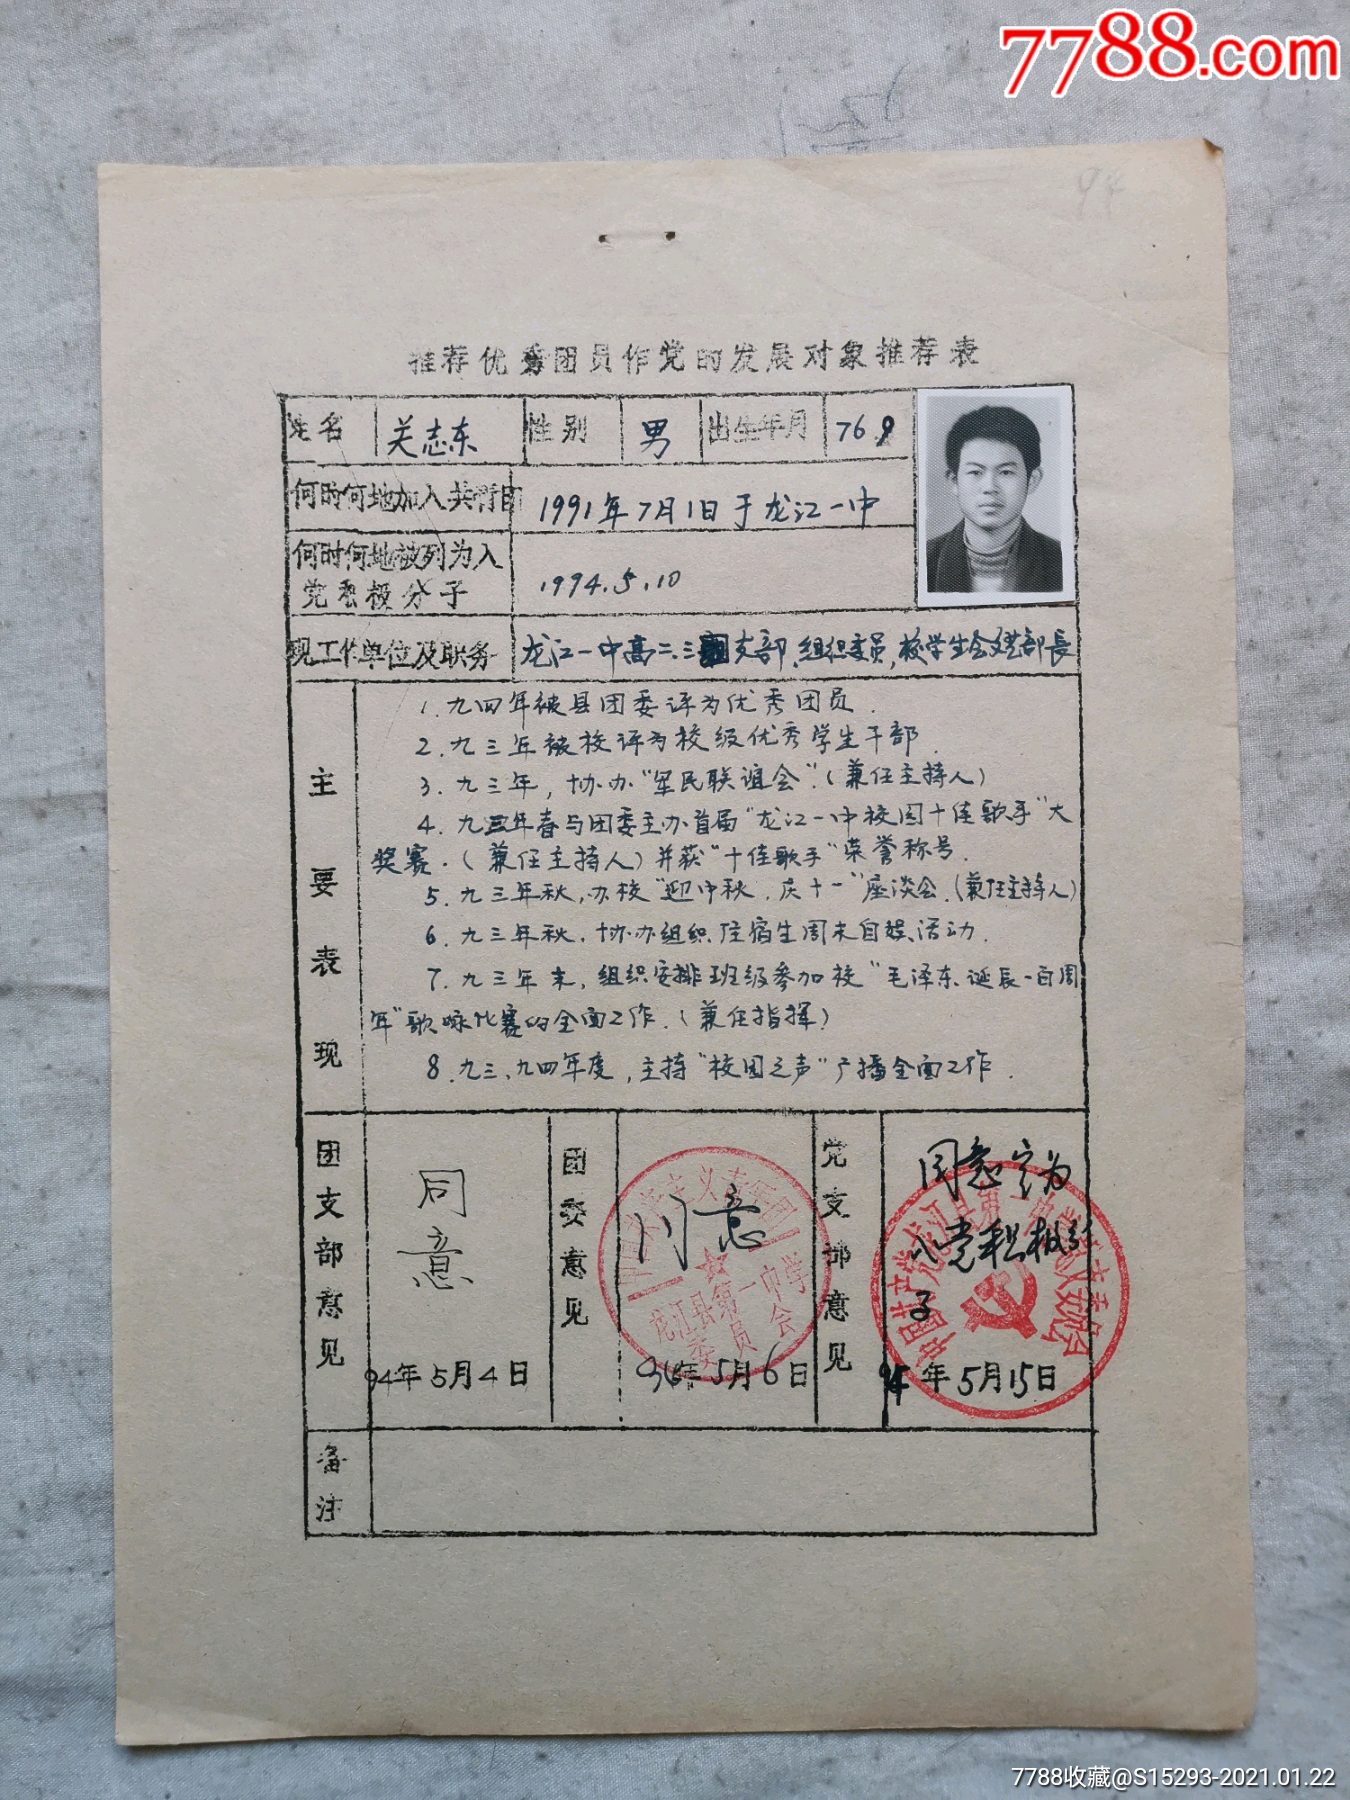 7788.com
94
推荐优秀团员作党的发展对象推荐表
姓名 关志东 性别 男 出生年月 76.9
何时何地加入共青团 1991年7月1日于龙江一中
何时何地被列为入
党积极分子 1994.5.10
现工作单位及职务 龙江一中高二.三团支部,组织委员,校学生会文艺部長
主要表现
1.九四年被县团委评为优秀团员.
2.九三年被校评为校级优秀学生干部.
3.九三年,协办"军民联谊会".(兼任主持人)
4.九三年春与团委主办首届"龙江一中校园十佳歌手"大
奖赛.(兼任主持人)并获"十佳歌手"荣誉称号.
5.九三年秋,办校"迎中秋.庆十一"座谈会.(兼任主持人)
6.九三年秋.协办组织住宿生周末自娱活动.
7.九三年末,组织安排班级参加校"毛泽东诞辰一百周
年"歌咏比赛的全面工作.(兼任指挥)
8.九三.九四年度,主持"校园之声"广播全面工作.
团支部意见
同意
94年5月4日
团委意见
同意
龙江县第一中学
委员会
94年5月6日
党支部意见
同意定为
入党积极分
子
中国共产党龙江县第一中学
94年5月15日
备注
7788收藏@S15293-2021.01.22